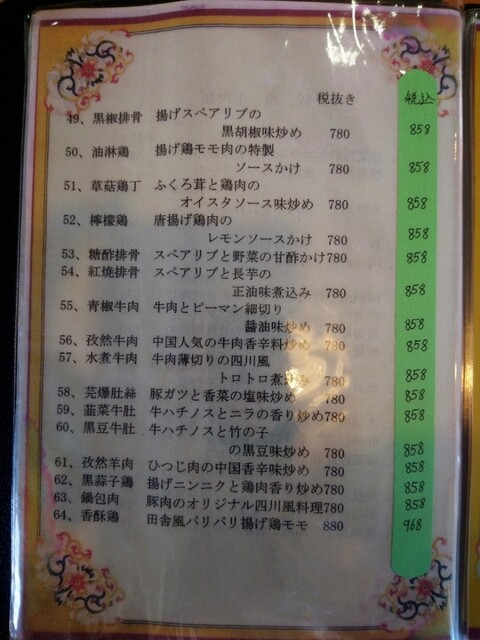 税抜き 税込
49、黒椒排骨 揚げスペアリブの
黒胡椒味炒め 780 858
50、油淋鶏 揚げ鶏モモ肉の特製
ソースかけ 780 858
51、草菇鶏丁 ふくろ茸と鶏肉の
オイスタソース味炒め 780 858
52、檸檬鶏 唐揚げ鶏肉の
レモンソースかけ 780 858
53、糖酢排骨 スペアリブと野菜の甘酢かけ780 858
54、紅焼排骨 スペアリブと長芋の
正油味煮込み 780 858
55、青椒牛肉 牛肉とピーマン細切り
醤油味炒め 780 858
56、孜然牛肉 中国人気の牛肉香辛料炒め 780 858
57、水煮牛肉 牛肉薄切りの四川風
トロトロ煮込み 780 858
58、芫爆肚絲 豚ガツと香菜の塩味炒め 780 858
59、韮菜牛肚 牛ハチノスとニラの香り炒め780 858
60、黒豆牛肚 牛ハチノスと竹の子
の黒豆味炒め 780 858
61、孜然羊肉 ひつじ肉の中国香辛味炒め 780 858
62、黒蒜子鶏 揚げニンニクと鶏肉香り炒め780 858
63、鍋包肉 豚肉のオリジナル四川風料理780 858
64、香酥鶏 田舎風パリパリ揚げ鶏モモ 880 968